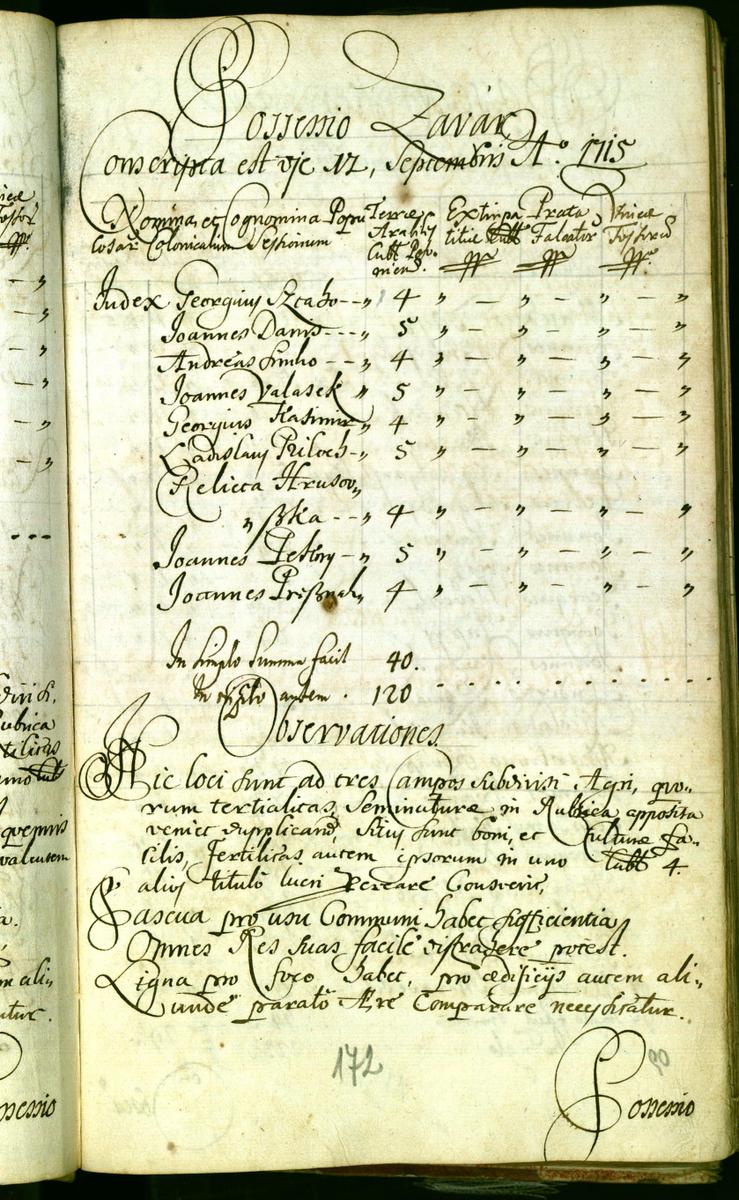 Possessio Zavar
Conscripta est die 12, Septembris Aº. 1715
Nomina et Cognomina Popu Terræ Extirpa Prata Vineæ
losar Colonicalium Sessionum Arabiles titiæ Cubt Falcator Fossorū
Cubt Pos.
Index Georgius Szabo -- „ 4 „ — „ — „ — „
Joannes Danis --- „ 5 „ — „ — „ — „
Andreas Simko -- „ 4 „ — „ — „ — „
Joannes Valasek „ 5 „ — „ — „ — „
Georgius Kasimir „ 4 „ — „ — „ — „
Ladislaus Piloch - „ 5 „ — „ — „ — „
Relicta Hrusov„
„ ßka -- „ 4 „ — „ — „ — „
Joannes Petkry - „ 5 „ — „ — „ — „
Joannes „ 4 „ — „ — „ — „
In simplo summa facit 40.
In autem . 120
Observationes.
Hic loci sunt ad tres Campos subdivisi Agri, quo-
rum tertialitas, Seminaturæ in Rubrica apposita
veniet dupplicand, Situs sunt boni, et Culturæ fa-
cilis, Fertilitas autem ipsorum in uno Cubt 4.
alius titulo lucri Conservit,
Pascua pro usu Communi habet sufficientia
Omnes Res suas facile distrahere potest.
Ligna pro foco habet, pro ædificijs autem ali-
unde parato Ære Comparare necessitatur.
172
90
Possessio